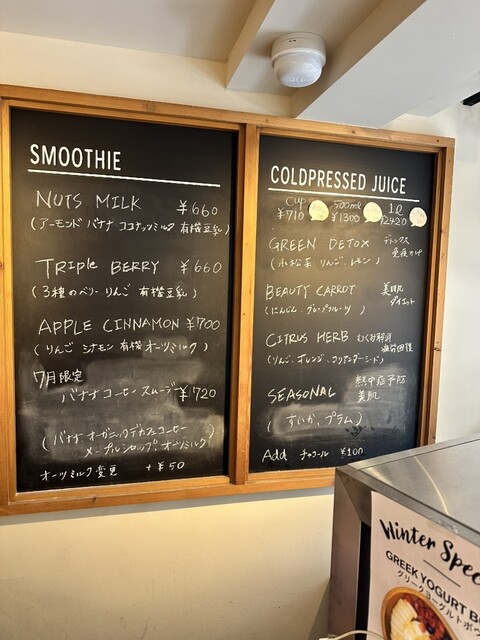 SMOOTHIE
NUTS MILK ¥660
(アーモンド バナナ ココナッツミルク 有機豆乳)
TRIPLE BERRY ¥660
(3種のベリー りんご 有機豆乳)
APPLE CINNAMON ¥700
(りんご シナモン 有機オーツミルク)
7月限定
バナナコーヒースムージー ¥720
(バナナ オーガニックデカフェコーヒー
メープルシロップ、オーツミルク)
オーツミルク変更 +¥50
COLDPRESSED JUICE
Cup 500ml 1l
¥710 ¥1300 ¥2420
GREEN DETOX デトックス
(小松菜、りんご、レモン) 免疫UP
BEAUTY CARROT 美肌
(にんじん、グレープフルーツ) ダイエット
CITRUS HERB むくみ解消
(りんご、オレンジ、コリアンダーシード) 疲労回復
SEASONAL 熱中症予防
美肌
(すいか、プラム)
Add チャコール ¥100
Winter Spec
GREEK YOGURT B
グリークヨーグルトボウ